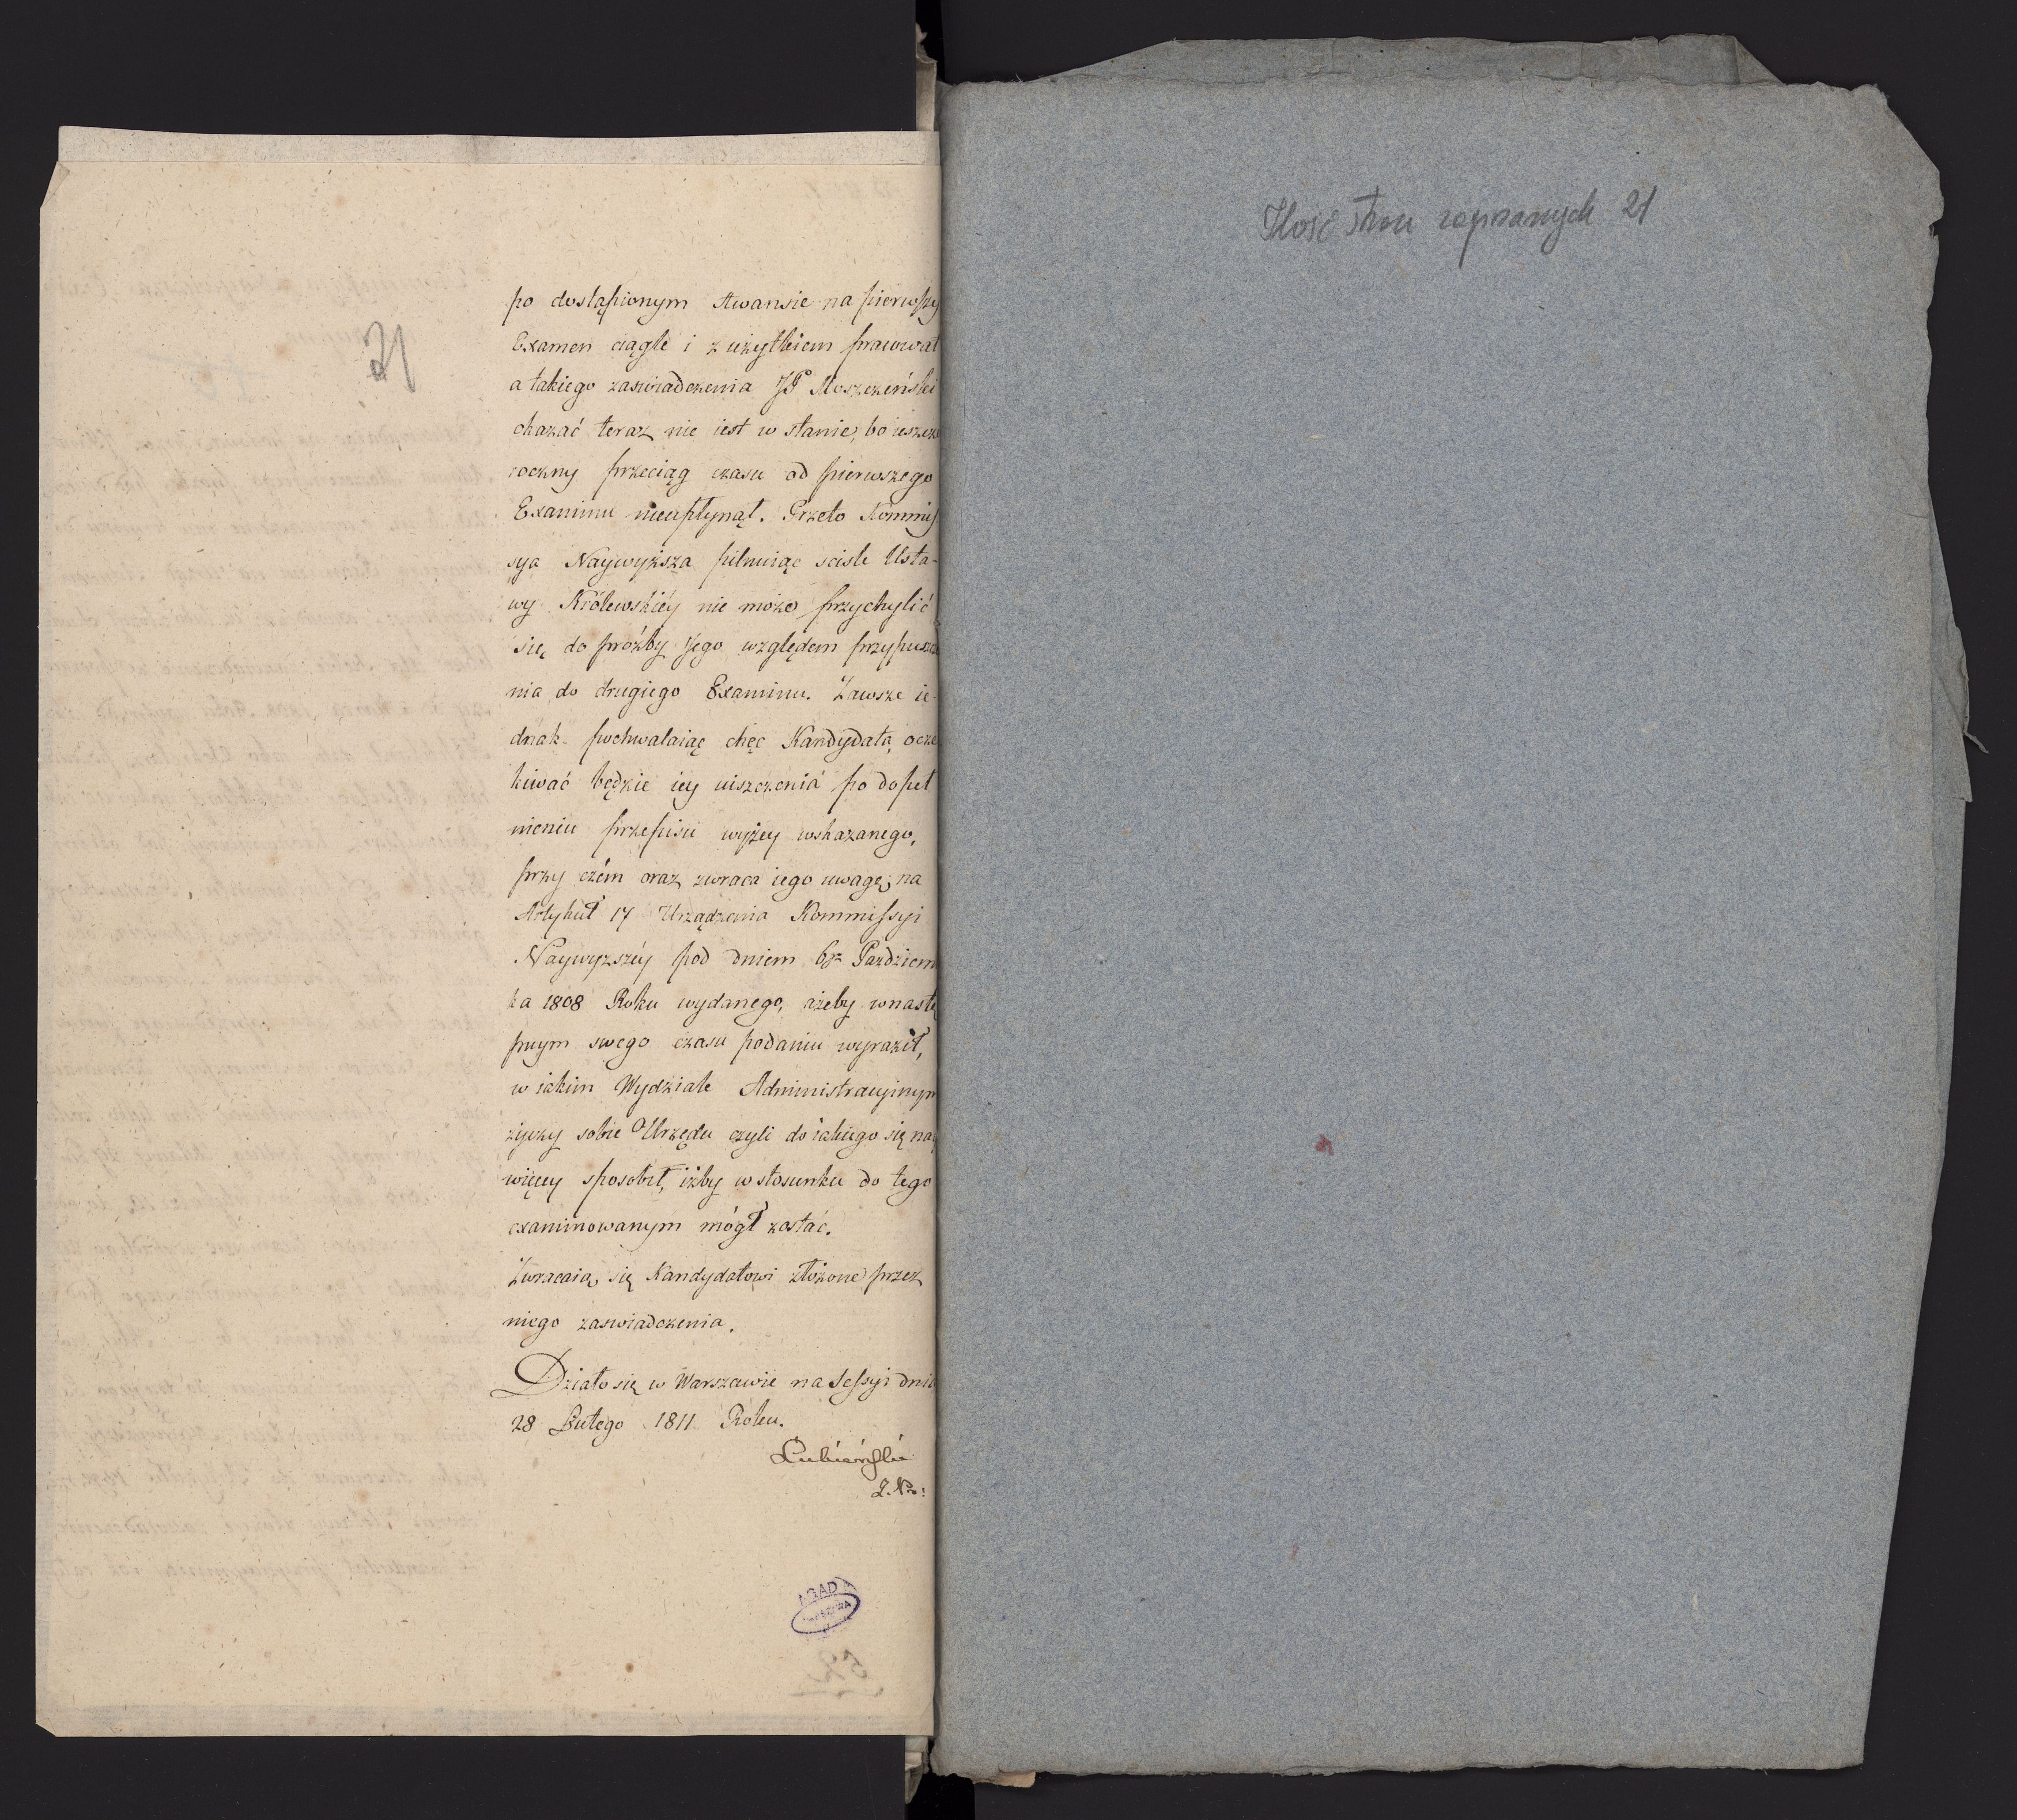 21
po dostąpionym Awansie na pierwszy
Examen ciągle i z użytkiem pracował
a takiego zaswiadczenia JP Moszczeński
okazać teraz nie iest w stanie, bo ieszcze
roczny przeciąg czasu od pierwszego
Examinu nieupłynął. Przeto Kommis
sya Naywyższa pilnuiąc scisle Usta-
wy Królewskiéy nie może przychylić
się do proźby Jego względem przypuszcze
nia do drugiego Examinu. Zawsze ie-
dnak pochwalaiąc chęc Kandydata, ocze
kiwać będzie iey uiszczenia po dopeł
nieniu przepisu wyżey wskazanego,
przy czém oraz zwraca iego uwagę na
Artykuł 17 Urządzenia Kommissyi
Naywyzszéy pod dniem 6 Pazdzierni
ka 1808 Roku wydanego, ażeby w nastę
pnym swego czasu podaniu wyraził,
w iakim Wydziale Administracyinym
życzy sobie Urzędu czyli do iakiego się nay
więcey sposobił, iżby w stosunku do tego
examinowanym mógł zostać.
Zwracaią się Kandydatowi złożone przez
niego zaswiadczenia.
Działo się w Warszawie na Sessyi dnia
28 Lutego 1811 Roku.
Łubieński
AGAD
Ilość stron zapisanych 21